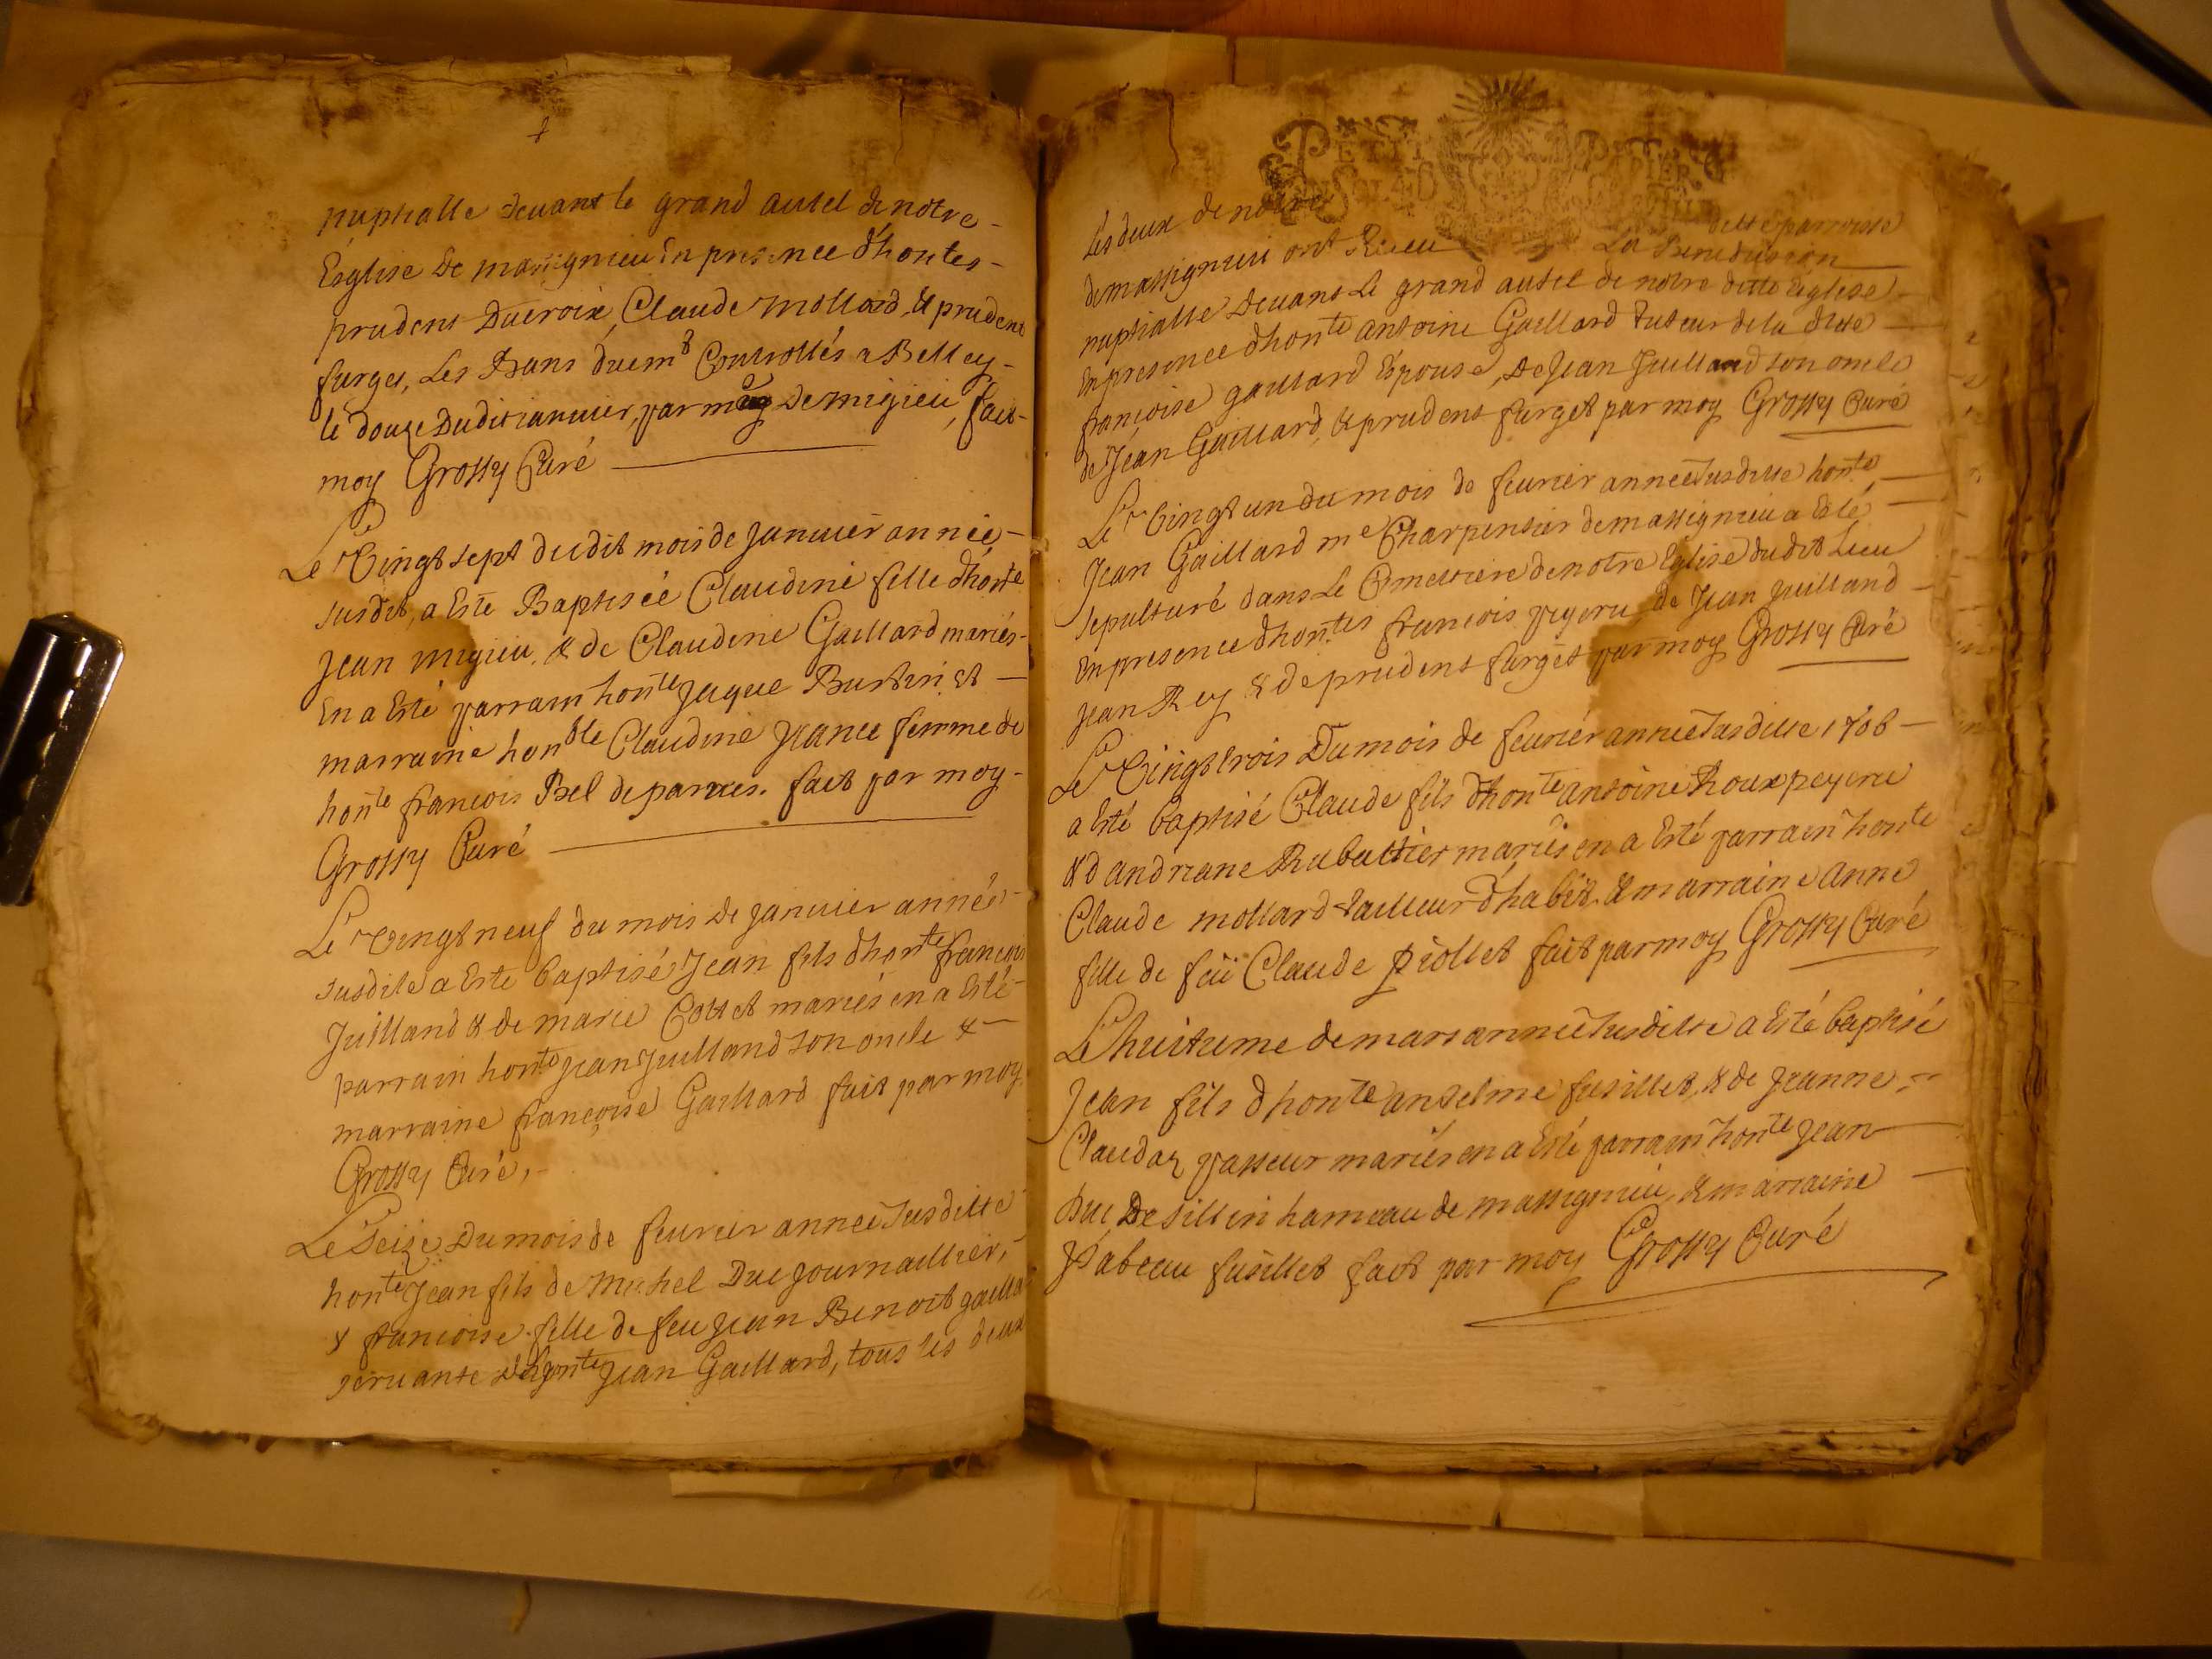 nuptialle devant le grand autel de notre
Esglise de massignieu En presence dhontes
prudent Ducroix, Claude mollard, & prudent
furget, Les Bans duemt Controllés a Belley
le douze dudit janvier, par mr de migieu, fait
moy Grossy Curé
Le Vingt sept dudit mois de janvier année
susdit, a Esté Baptisée Claudine fille dhonte
Jean migieu, & de Claudine Gaillard mariés
En a Esté parrain honte Jaque Burtin et
marraine honble Claudine Jeanee femme de
honte francois Bel de parves. fait par moy
Grossy Curé
Le Vingt neuf du mois de janvier année
susdite a Esté baptisé Jean fils dhonte francois
Juilland & de marie Cottet mariés en a Esté
parrain honte jean juilland son oncle &
marraine françoise Gaillard fait par moy
Grossy Curé,
Le Seize Du mois de fevrier année susditte
honte Jean fils de Michel Duc journaillier,
& francoise fille de feu jean Benoit gaillar
servante dehonte jean Gaillard, tous les deux
PETIT PAPIER
les deux de notre ditte parroisse
de massignieu ont Receu La Benediction
nuptialle Devant Le grand autel de notre ditte Eglise
En presence dhonte antoine Gaillard tuteur de la ditte
françoise gaillard Epouse, de Jean Juilland son oncle
de Jean Gaillard, & prudent furget par moy Grossy Curé
Le Vingt un du mois de fevrier année susditte honte
Jean Gaillard me Charpentier de massignieu a Esté
sepulturé dans Le Cimettiere de notre Eglise dudit Lieu
En presence dhontes francois peyeru de Jean Juilland
jean Rey & de prudent furget par moy Grossy Curé
Le Vingt trois Du mois de fevrier année susditte 1706
a Esté baptisé Claude fils dhonte antoine Roux peyeru
& d andreane Rubattier mariés en a Esté parrain honte
Claude mollard tailleur d'habit. & marraine anne
fille de feü Claude piollet fait par moy Grossy Curé
Le huitieme de mars année susditte a Esté baptisé
Jean fils dhonte antelme fusillet, & de jeanne
Claudaz passeur mariés en a Esté parrain honte jean
Duc De sillin hameau de massignieu, & marraine
Jsabeau fusillet fait par moy Grossy Curé